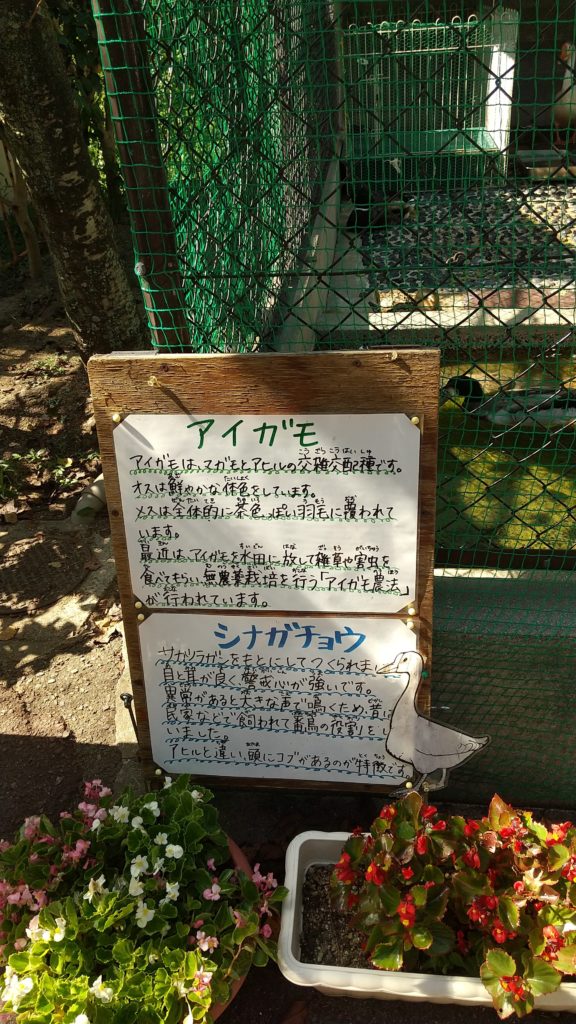 アイガモ
アイガモは、マガモとアヒルの交雑交配種です。
オスは鮮やかな体色をしています。
メスは全体的に茶色っぽい羽毛に覆われて
います。
最近は、アイガモを水田に放して雑草や害虫を
食べてもらい無農薬栽培を行う「アイガモ農法」
が行われています。
シナガチョウ
サカツラガンをもとにしてつくられまし
目と耳が良く警戒心が強いです。
異常があると大きな声で鳴くため、昔
民家などで飼われて番鳥の役割をし
いました。
アヒルと違い、頭にコブがあるのが特徴です。